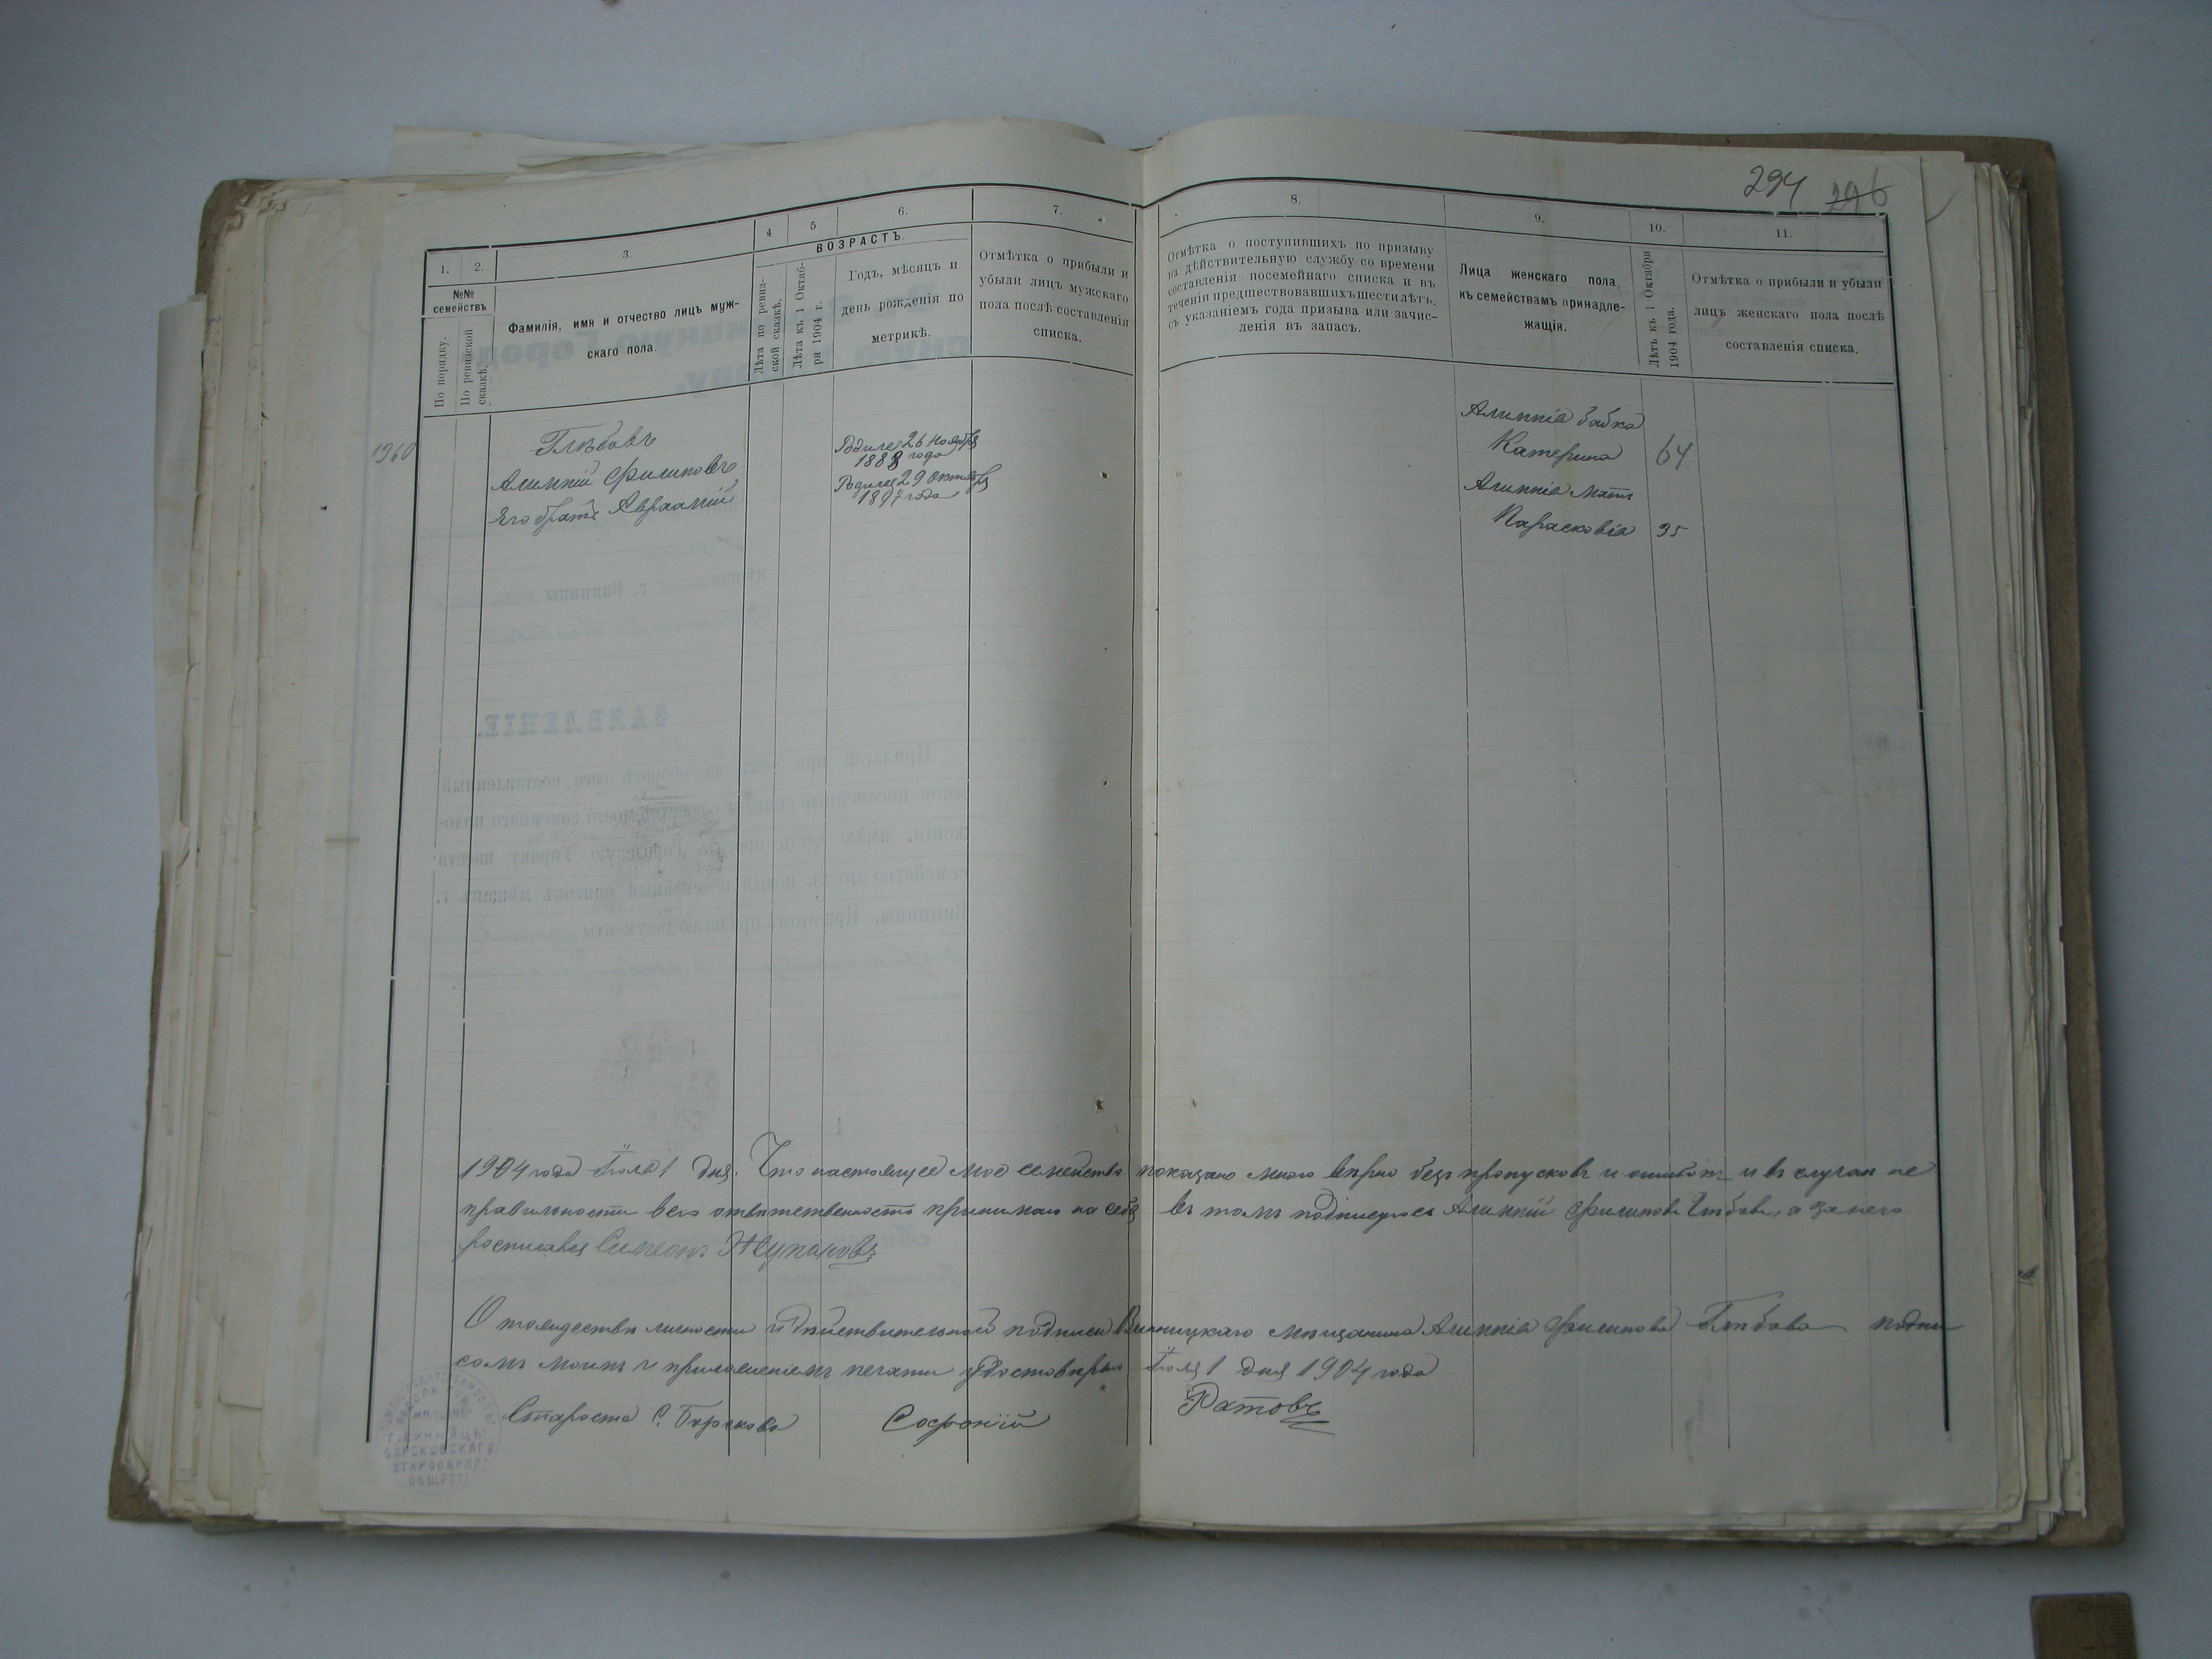 294 296
1.
2.
3.
4
5
6.
7.
8.
9.
10.
11.
№№
семействъ
По порядку.
По ревизской
сказкѣ.
Фамилія, имя и отчество лицъ муж-
скаго пола.
ВОЗРАСТЪ.
Лѣта по ревиз-
ской сказкѣ.
Лѣта къ 1 Октяб-
ря 1904 г.
Годъ, мѣсяцъ и
день рожденія по
метрикѣ.
Отмѣтка о прибыли и
убыли лицъ мужскаго
пола послѣ составленія
списка.
Отмѣтка о поступившихъ по призыву
на дѣйствительную службу со времени
составленія посемейнаго списка и въ
теченіи предшествовавшихъ шести лѣтъ,
съ указаніемъ года призыва или зачис-
ленія въ запасъ.
Лица женскаго пола,
къ семействамъ принадле-
жащія.
Лѣтъ къ 1 Октября
1904 года.
Отмѣтка о прибыли и убыли
лицъ женскаго пола послѣ
составленія списка.
1960
Глѣбовъ
Алимпій Филиповъ
Его братъ Авраамій
Родился 26 ноября
1888 года
Родился 29 октября
года
Алимпія бабка
Катерина 64
Алимпія мать
Парасковія 35
1904 года Іюля 1 дня. Что настоящее мое семейство показано мною вѣрно безъ пропусковъ и ошибокъ и въ случаи не
правильности всю отвѣтственность принимаю на себя въ томъ подписуюсь Алимпій Филиповъ Глѣбовъ, а за него
росписался Симеонъ Жупановъ
О тождествѣ личности и дѣйствительной подписи Винницкаго мѣщанина Алимпія Филипова Глѣбова подпи
сомъ моимъ и приложеніемъ печати удостовѣряю Іюля 1 дня 1904 года
Староста С. Софроній Ратовъ
Г. ВИННИЦЫ
СТАРООБРЯД
ОБЩЕСТ
ЗАЯВЛЕНІЕ.